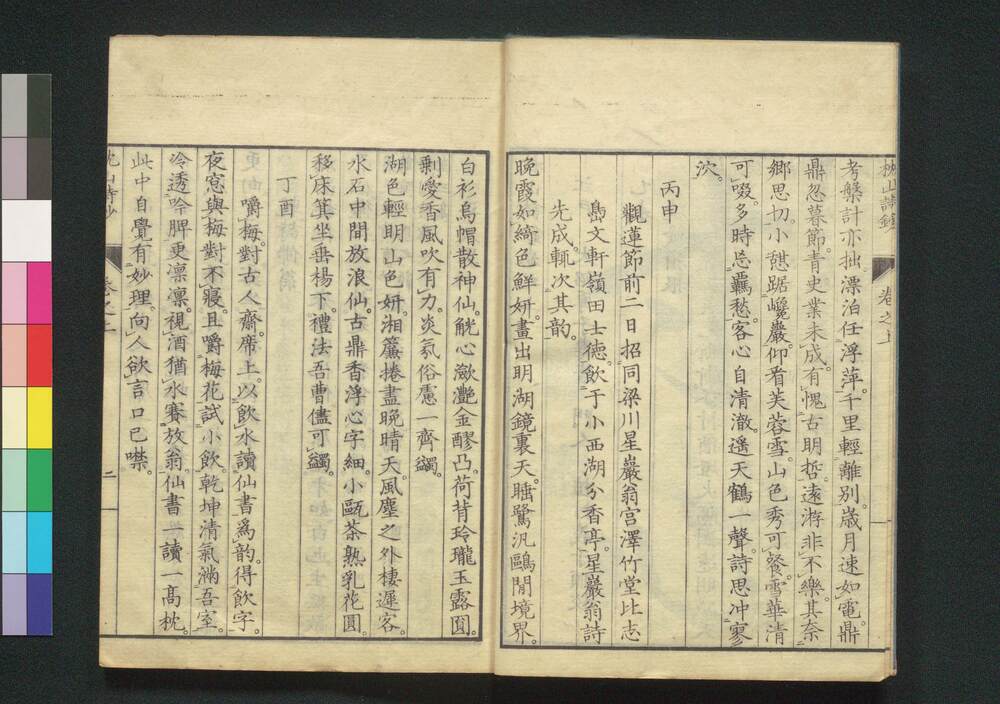 考槃計亦拙。漂泊任浮萍。千里輕離別。歳月速如電。鼎
鼎忽暮節。青史業未成。有愧古明哲。遠游非不樂。其奈
鄉思切。小憇踞巉巖。仰看芙蓉雪。山色秀可餐。雪華清
可啜。多時忘羈愁。客心自清澈。遙天鶴一聲。詩思冲寥
泬。
丙申
觀蓮節前二日招同梁川星巖翁宮澤竹堂比志
島文軒嶺田士德。飲于小西湖分香亭。星巖翁詩
先成。輒次其韵。
晚霞如綺色鮮妍。畫出明湖鏡裏天。睡鷺汎鷗閒境界。
卷之上
白衫烏帽散神仙。觥心瀲灩金醪凸。荷背玲瓏玉露圓。
剩愛香風吹有力。炎氛俗慮一齊蠲。
湖色輕明山色妍。湘簾捲盡晚晴天。風塵之外棲遲客。
水石中間放浪仙。古鼎香浮心字細。小甌茶熟乳花圓。
移床箕坐垂楊下。禮法吾曹儘可蠲。
丁酉
嚼梅。對古人齋。席上。以飲水讀仙書爲韵。得飲字。
夜窓與梅對不寢。且嚼梅花試小飲。乾坤清氣滿吾室。
冷透吟脾更凛凛。視酒猶水賽放翁。仙書一讀一高枕。
此中自覺有妙理。向人欲言口已噤。